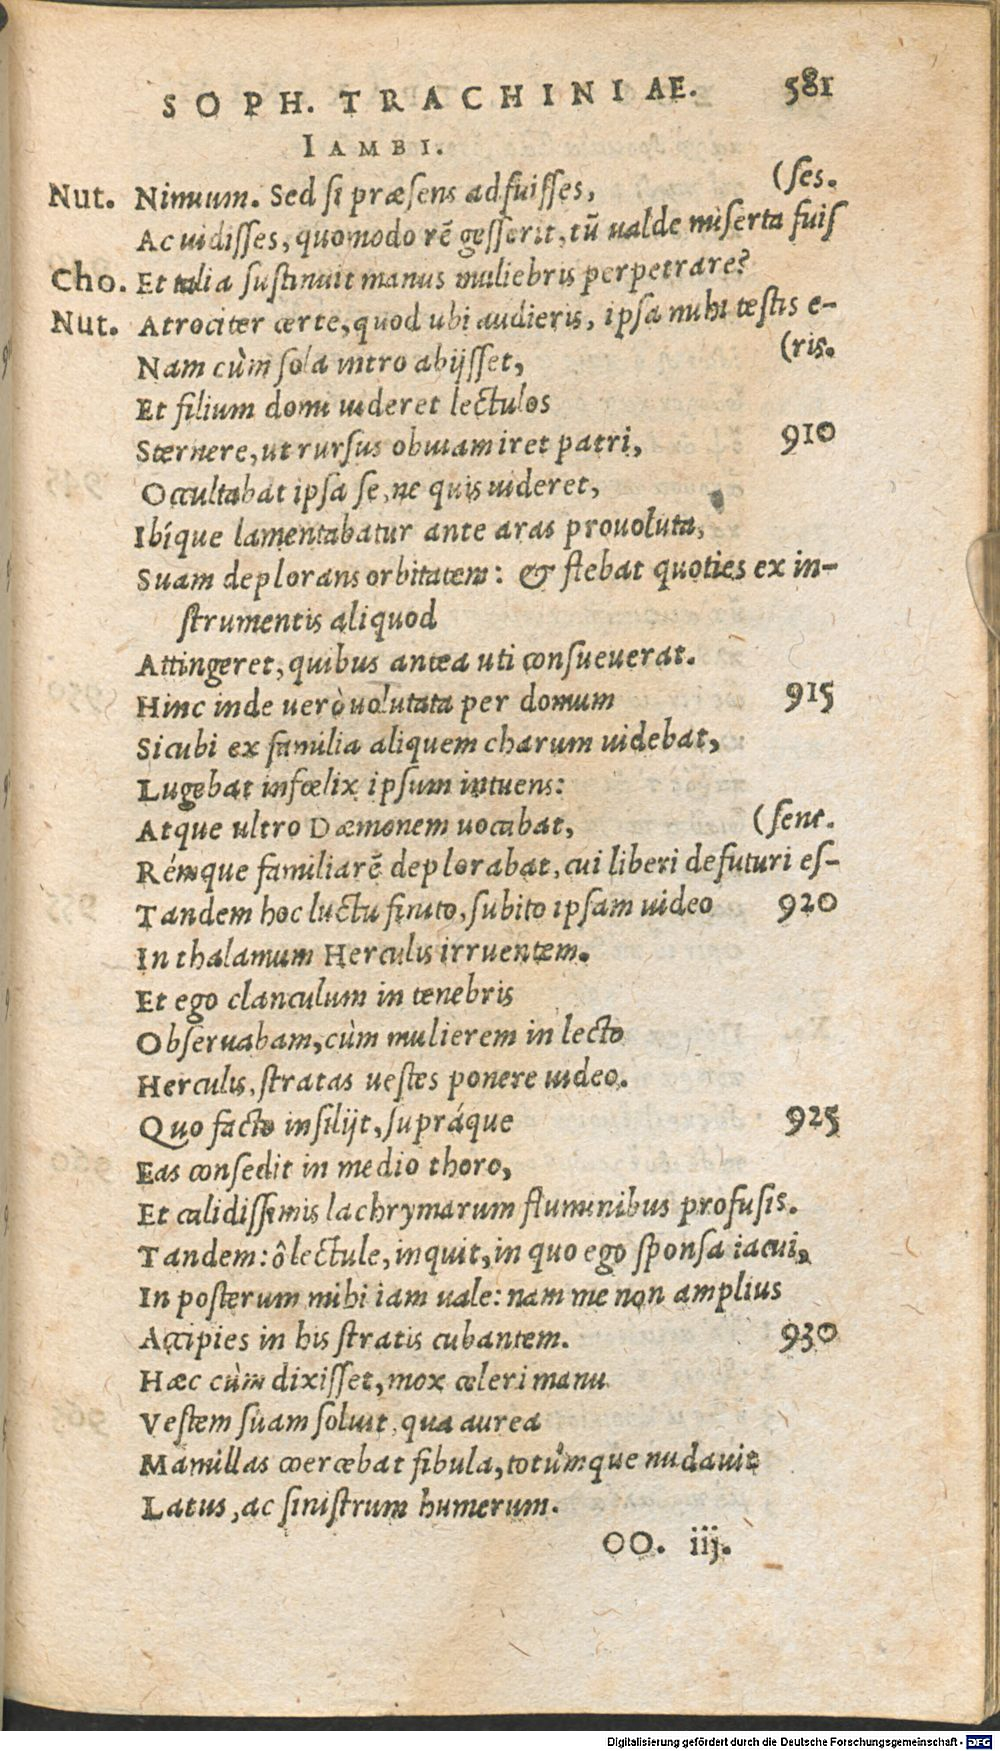 SOPH. TRACHINIAE. 581
IAMBI.
Nut. Nimium. Sed si præsens adfuisses, (ses.
Ac uidisses, quomodo rē gesserit, tū ualde miserta fuis
Cho. Et talia sustinuit manus muliebris perpetrare?
Nut. Atrociter certe, quod ubi audieris, ipsa mihi testis e-
Nam cùm sola intro abijsset, (ris.
Et filium domi uideret lectulos
Sternere, ut rursus obuiam iret patri, 910
Occultabat ipsa se, ne quis uideret,
Ibíque lamentabatur ante aras prouoluta,
Suam deplorans orbitatem: & flebat quoties ex in-
strumentis aliquod
Attingeret, quibus antea uti consueuerat.
Hinc inde uerò uolutata per domum 915
Sicubi ex familia aliquem charum uidebat,
Lugebat infœlix ipsum intuens:
Atque ultro Dæmonem uocabat, (sent.
Rémque familiarē deplorabat, cui liberi defuturi es-
Tandem hoc luctu finito, subito ipsam uideo 920
In thalamum Herculis irruentem.
Et ego clanculum in tenebris
Obseruabam, cùm mulierem in lecto
Herculis, stratas uestes ponere uideo.
Quo facto insilijt, supráque 925
Eas consedit in medio thoro,
Et calidissimis lachrymarum fluminibus profusis.
Tandem: ô lectule, inquit, in quo ego sponsa iacui,
In posterum mihi iam uale: nam me non amplius
Accipies in his stratis cubantem. 930
Hæc cùm dixisset, mox celeri manu
Vestem suam soluit, qua aurea
Mamillas coercebat fibula, totúmque nudauit
Latus, ac sinistrum humerum.
OO. iij.
Digitalisierung gefördert durch die Deutsche Forschungsgemeinschaft - DFG